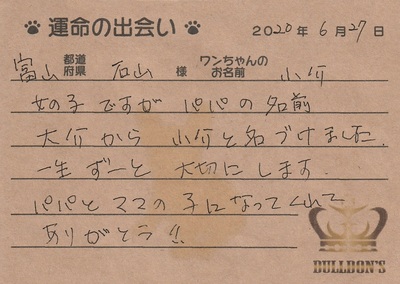 運命の出会い 2020年6月27日
富山 都道府県 石山 様 ワンちゃんのお名前 小介
女の子ですが パパの名前
大介から 小介と名づけました.
一生ずーと 大切にします.
パパとママの子になってくれて
ありがとう!!
BULLDON'S